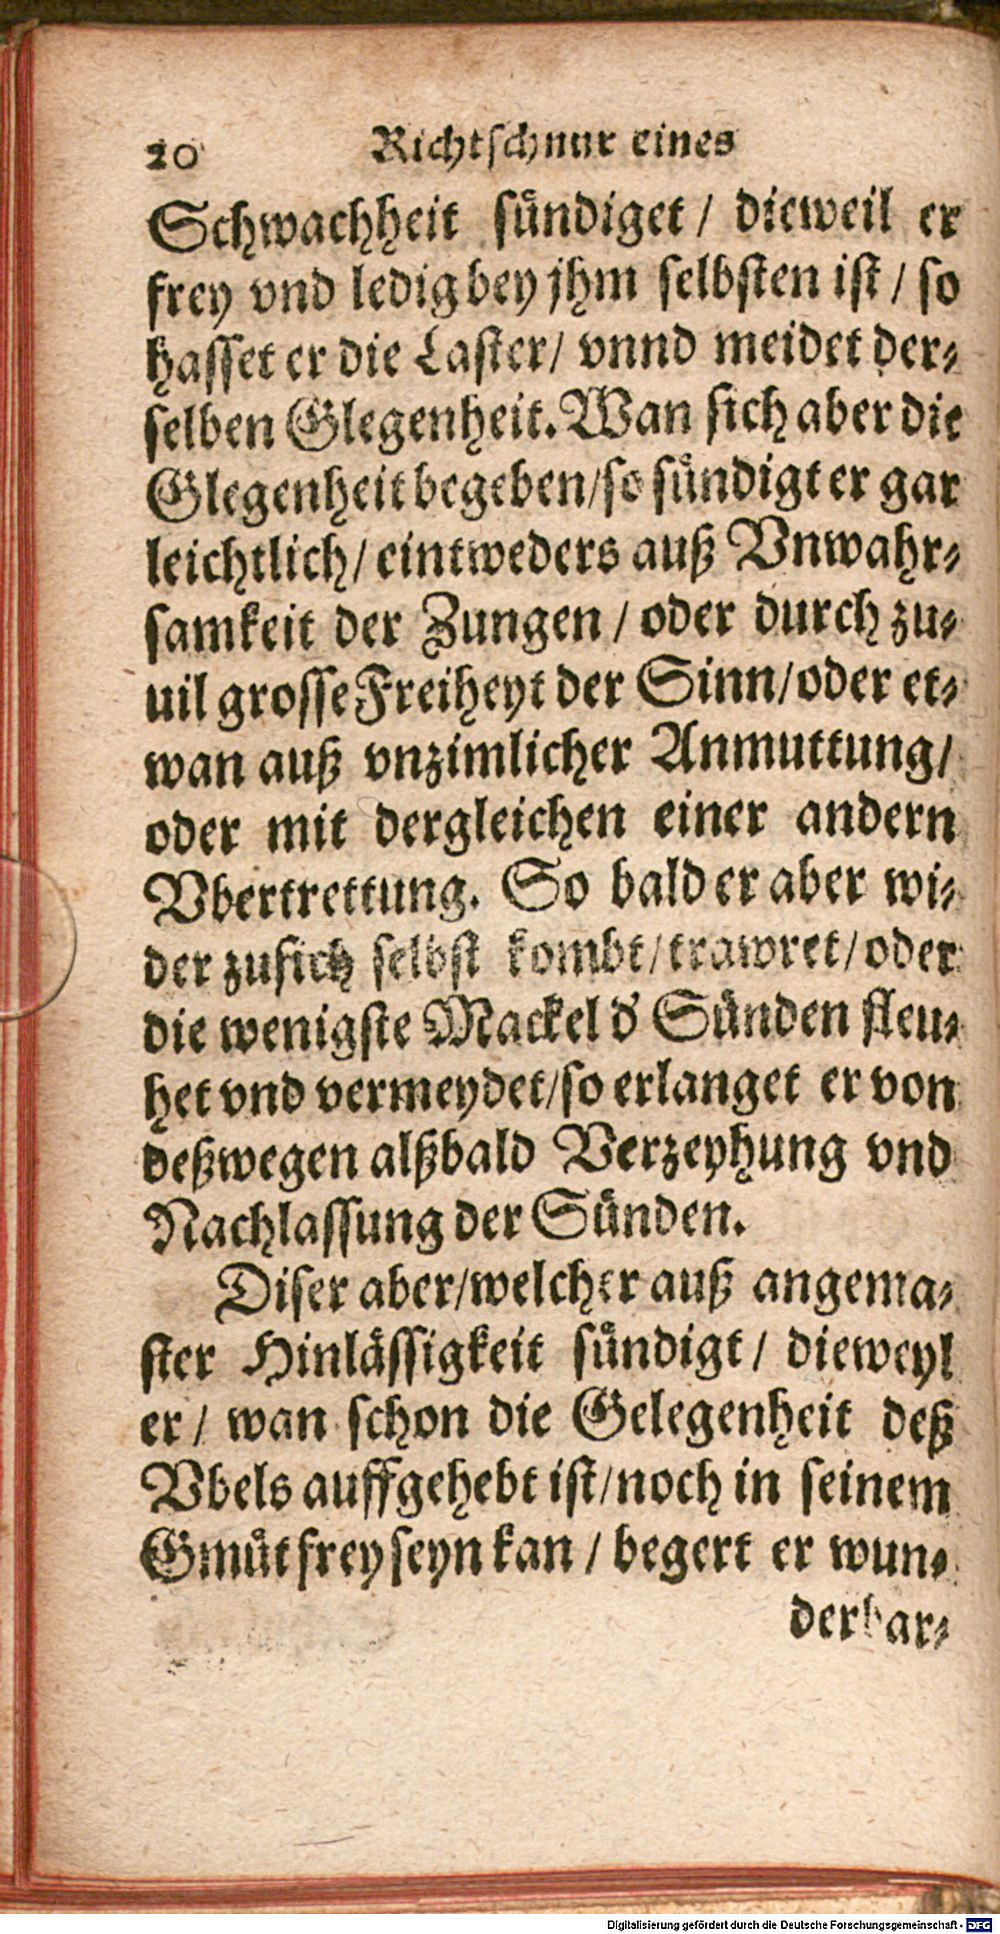 20 Richtſchnur eines
Schwachheit ſündiget / dieweil er
frey vnd ledig bey jhm ſelbſten iſt / ſo
haſſet er die Laſter / vnnd meidet der⸗
ſelben Glegenheit. Wan ſich aber die
Glegenheit begeben / ſo ſündigt er gar
leichtlich / eintweders auß Vnwahr⸗
ſamkeit der Zungen / oder durch zu⸗
uil groſſe Freiheyt der Sinn / oder et⸗
wan auß vnzimlicher Anmuttung /
oder mit dergleichen einer andern
Vbertrettung. So bald er aber wi⸗
der zuſich ſelbſt kombt / trawret / oder
die wenigſte Mackel d' Sünden fleu⸗
het vnd vermeydet / ſo erlanget er von
deßwegen alßbald Verzeyhung vnd
Nachlaſſung der Sünden.
Diſer aber / welcher auß angema⸗
ſter Hinläſſigkeit ſündigt / dieweyl
er / wan ſchon die Gelegenheit deß
Vbels auffgehebt iſt / noch in ſeinem
Gmüt frey ſeyn kan / begert er wun⸗
derbar⸗
Digitalisierung gefördert durch die Deutsche Forschungsgemeinschaft - DFG